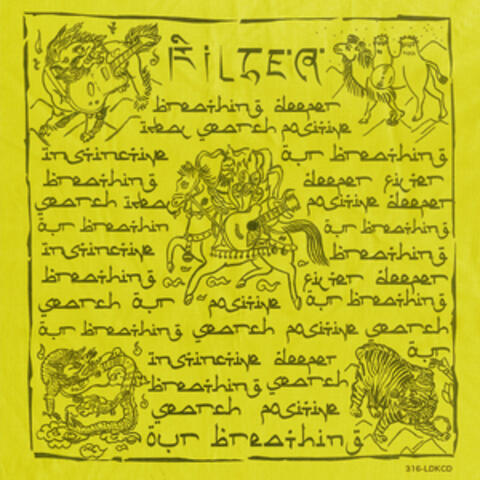 FILTER
breathing deeper
idea search positive
instinctive our breathing
breathing deeper filter
search idea positive deeper
our breathing our breathing
instinctive breathing
breathing filter deeper
search our positive our breathing
our breathing search positive search
our
instinctive deeper
breathing search
search positive
our breathing
316-LDKCD